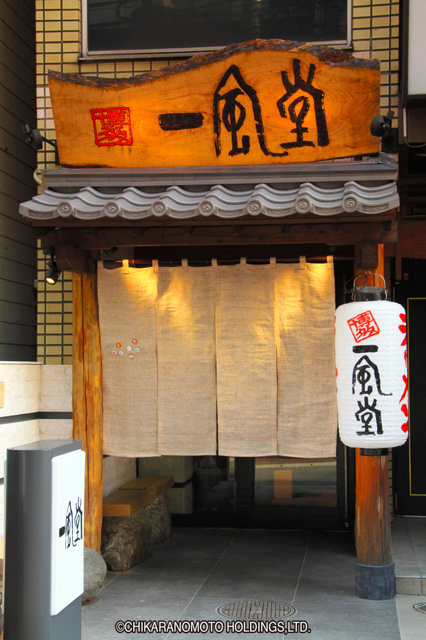 博多 一風堂
博多
一風堂
ラーメン
一風堂
©CHIKARANOMOTO HOLDINGS,LTD.